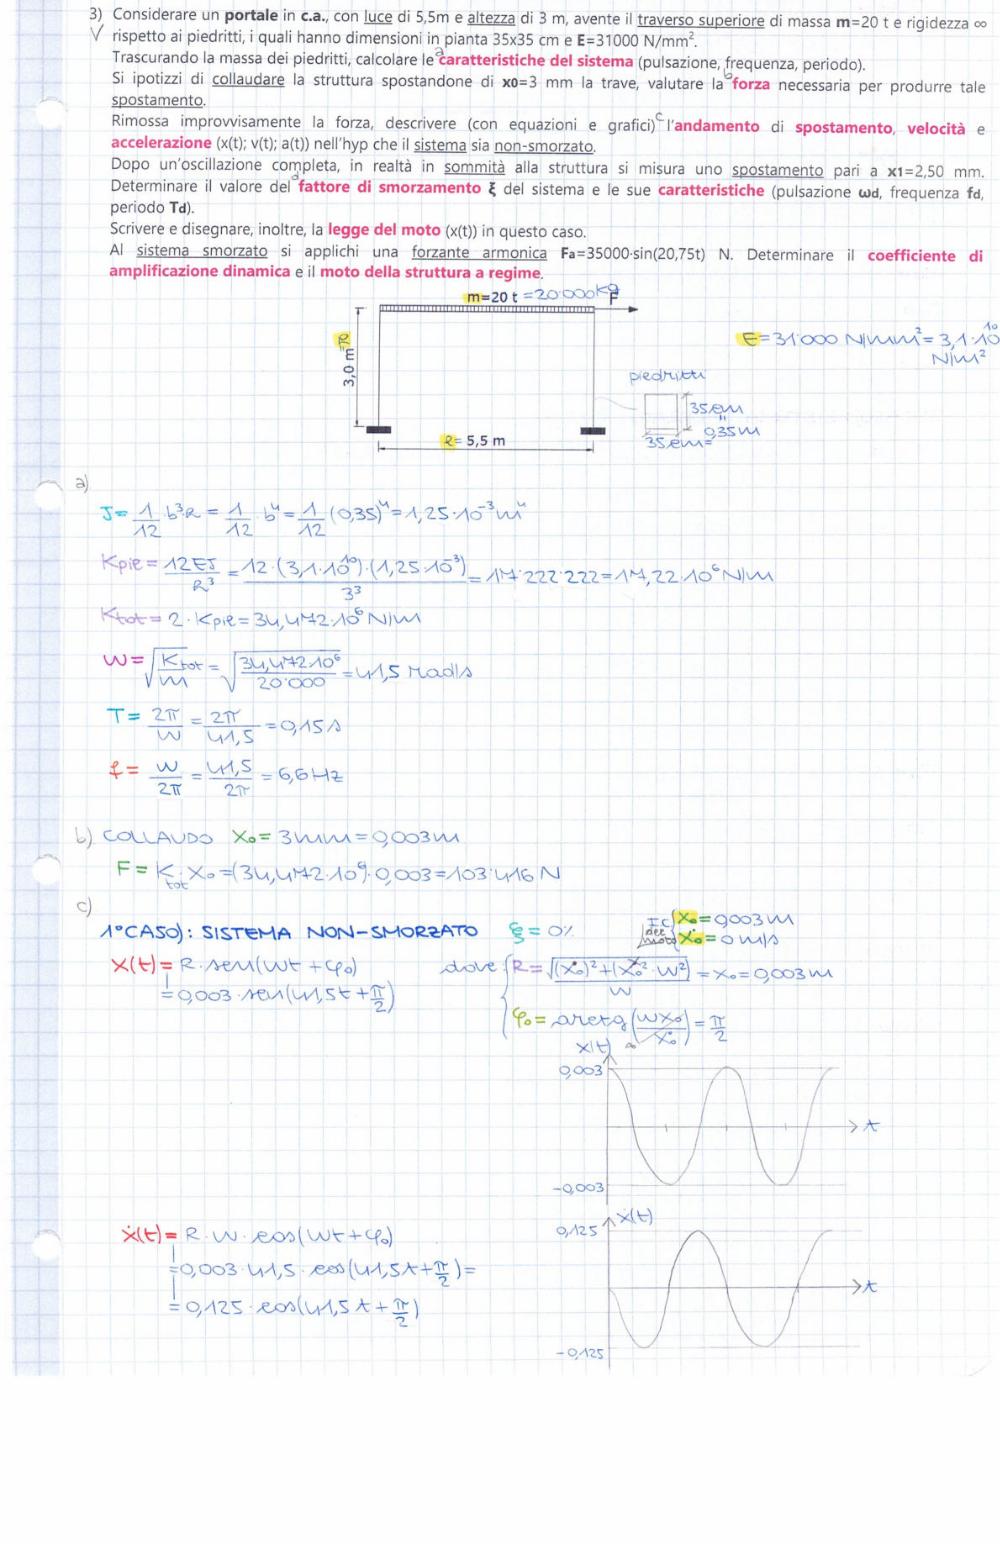 3) Considerare un portale in c.a., con luce di 5,5m e altezza di 3 m, avente il traverso superiore di massa m=20 t e rigidezza ∞
V rispetto ai piedritti, i quali hanno dimensioni in pianta 35x35 cm e E=31000 N/mm².
Trascurando la massa dei piedritti, calcolare le a caratteristiche del sistema (pulsazione, frequenza, periodo).
Si ipotizzi di collaudare la struttura spostandone di x0=3 mm la trave, valutare la b forza necessaria per produrre tale
spostamento.
Rimossa improvvisamente la forza, descrivere (con equazioni e grafici) c l'andamento di spostamento, velocità e
accelerazione (x(t); v(t); a(t)) nell'hyp che il sistema sia non-smorzato.
Dopo un'oscillazione completa, in realtà in sommità alla struttura si misura uno spostamento pari a x1=2,50 mm.
Determinare il valore del d fattore di smorzamento ξ del sistema e le sue caratteristiche (pulsazione ωd, frequenza fd,
periodo Td).
Scrivere e disegnare, inoltre, la legge del moto (x(t)) in questo caso.
Al sistema smorzato si applichi una forzante armonica Fa=35000·sin(20,75t) N. Determinare il coefficiente di
amplificazione dinamica e il moto della struttura a regime.
m=20 t =20'000kg
F
3,0 m =h
E=31'000 N/mm²= 3,1·10¹⁰
N/m²
piedritti
35cm
"
0,35m
35cm=
l= 5,5 m
a)
J= 1/12 b³h = 1/12 · b⁴ = 1/12 (0,35)⁴=1,25·10⁻³m⁴
Kpie = 12EJ/h³ = 12·(3,1·10¹⁰)·(1,25·10⁻³)/3³ = 17'222'222=17,22·10⁶N/m
Ktot= 2·Kpie=34,472·10⁶N/m
W=√(Ktot/m) = √(34,472·10⁶/20'000) =41,5 rad/s
T= 2π/W = 2π/41,5 =0,15s
f= W/2π = 41,5/2π = 6,6Hz
b) COLLAUDO X₀= 3mm=0,003m
F= Ktot·X₀=(34,472·10⁶)·0,003=103'416N
c)
1°CASO): SISTEMA NON-SMORZATO ξ= 0%
IC del moto { X₀=0,003m
Ẋ₀=0m/s
X(t)=R·sen(wt+φ₀)
=0,003·sen(41,5t+π/2)
dove { R= √((Ẋ₀)²+(X₀²·W²))/W =X₀=0,003m
φ₀= arctg(WX₀/Ẋ₀)=π/2
∞
X(t)
0,003
t
-0,003
Ẋ(t)= R·W·cos(Wt+φ₀)
=0,003·41,5·cos(41,5t+π/2)=
=0,125·cos(41,5t+π/2)
Ẋ(t)
0,125
t
-0,125